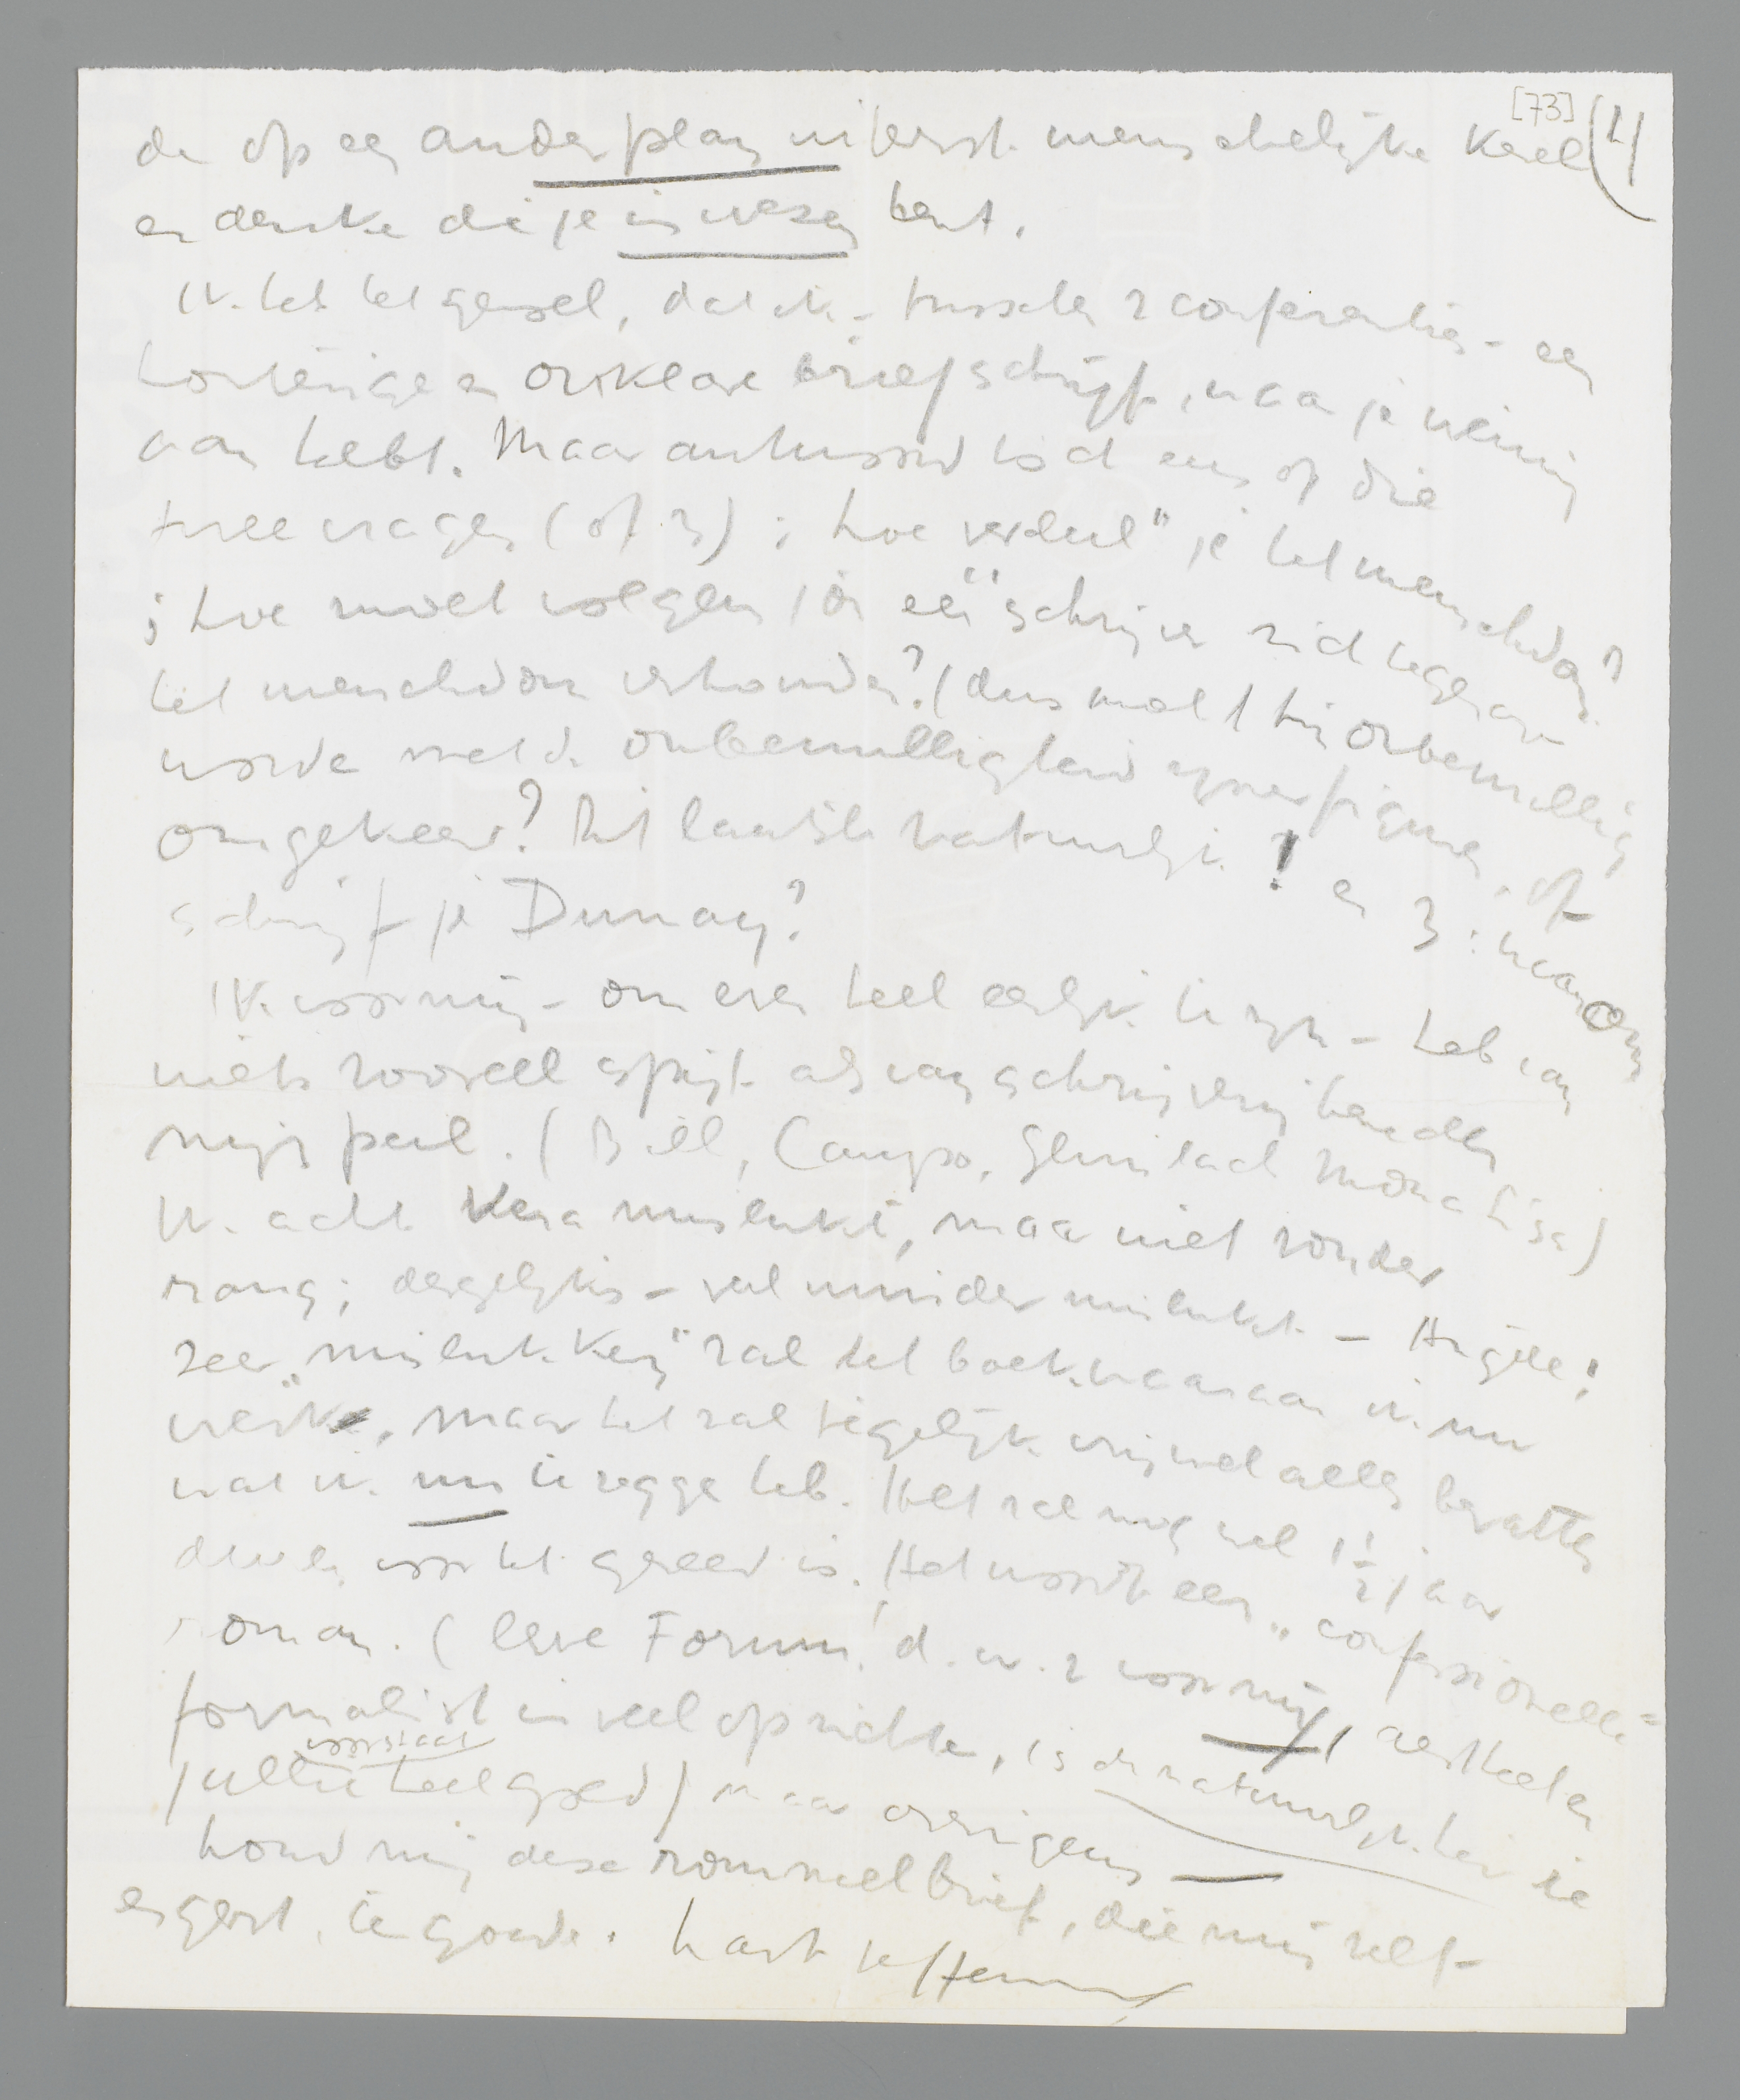 [73] (4)
de op een ander plan uiterst menschelijke kerel
en denker die je in wezen bent.
Ik heb het gevoel, dat ik - tusschen 2 conferenties - een
 en onklare brief schrijf, waar je weinig
aan hebt. Maar antwoord toch eens op die
twee vragen (of 3) : hoe verdeel" je het menschdom?
; hoe moet volgens jou een schrijver zich tegenover
het menschdom verhouden? (dus moet hij onbewillig
worden met de onbewilligheid zijner figuren, of
omgekeerd? Dit laatste natuurlijk! en 3: waarom
schrijf je Dumay?
Ik voor mij - om even heel eerlijk te zijn - heb van
niets zooveel spijt als van schrijverij beneden
mijn peil. (Bill, Campo, Glimlach Mona Lisa)
Ik acht Vera mislukt, maar niet zonder
rang; dergelijks - veel minder mislukt - Angèle;
zeer "mislukken" zal het boek waaraan ik nu
werk, maar het zal tegelijk vrijwel alles bevatten
wat ik nu te zeggen heb. Het zal nog wel 1½ jaar
duren voor het gereed is. Het wordt een "confessioneele"
roman. (Leve Forum! d.w.z voor mij, aestheet en
formalist in veel opzichten, is de natuurlijkheid die
jullie voorstaat heel goed) maar overigens —
Houd mij deze rommelbrief, die mij zelf
ergert, ten goede. Hart. je